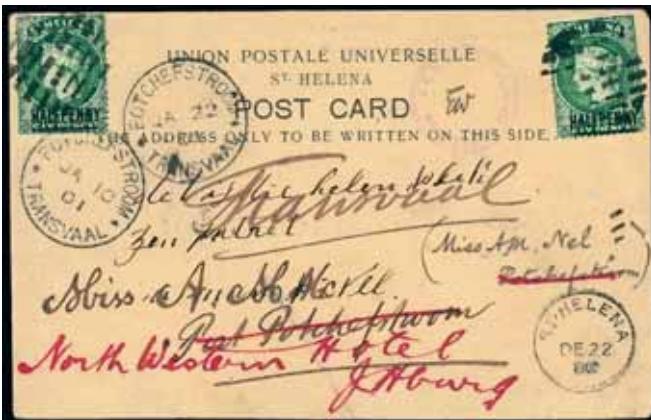 HALFPENNY
HALFPENNY
UNION POSTALE UNIVERSELLE
ST. HELENA
POST CARD
THE ADDRESS ONLY TO BE WRITTEN ON THIS SIDE.
POTCHEFSTROOM
JA 22
TRANSVAAL
POTCHEFSTROOM
JA 10
01
TRANSVAAL
Transvaal
(Miss A.M. Nel
Potchefstroom)
Miss
Post Potchefstroom
North Western Hotel
JHburg
ST. HELENA
DE 22